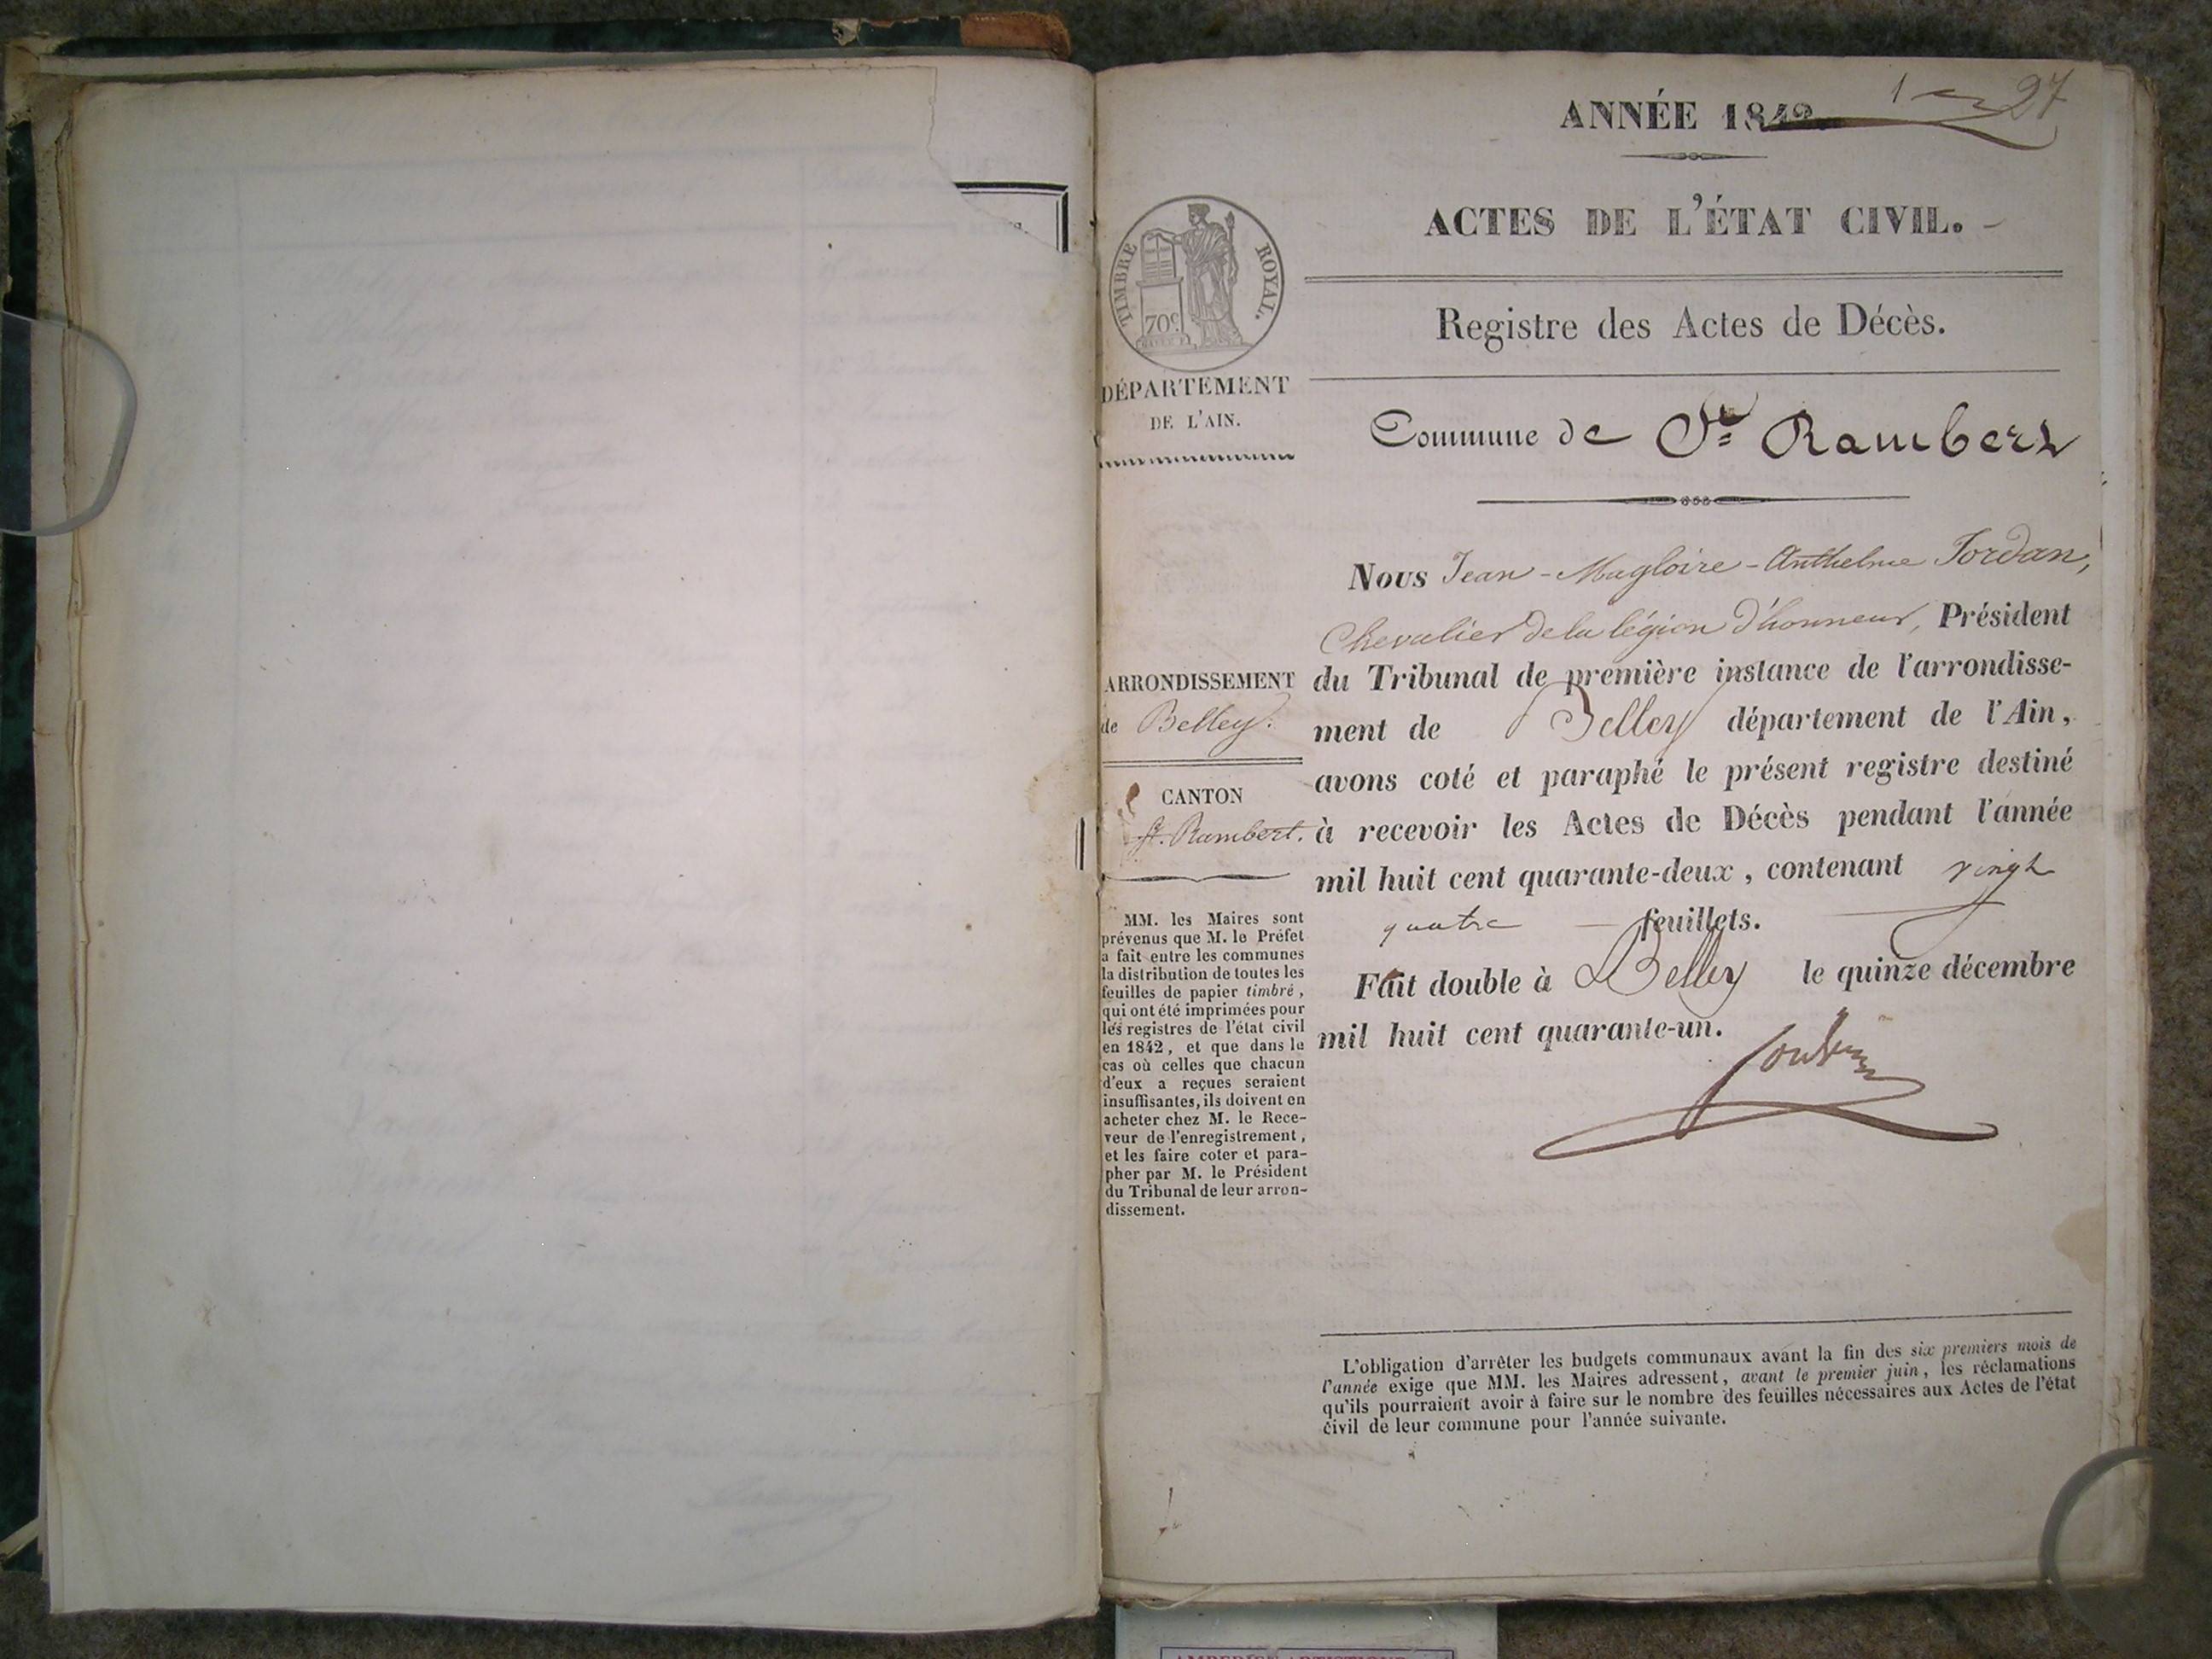 ANNÉE 1842.
ACTES DE L'ÉTAT CIVIL.
Registre des Actes de Décès.
TIMBRE ROYAL.
70c
DÉPARTEMENT
DE L'AIN.
Commune de St Rambert
Nous Jean-Magloire-Anthelme Jordan,
Chevalier de la légion d'honneur, Président
du Tribunal de première instance de l'arrondisse-
ment de Belley département de l'Ain,
avons coté et paraphé le présent registre destiné
à recevoir les Actes de Décès pendant l'année
mil huit cent quarante-deux, contenant vingt
quatre feuillets.
Fait double à Belley le quinze décembre
mil huit cent quarante-un.
ARRONDISSEMENT
de Belley.
CANTON
St. Rambert.
MM. les Maires sont
prévenus que M. le Préfet
a fait entre les communes
la distribution de toutes les
feuilles de papier timbré,
qui ont été imprimées pour
les registres de l'état civil
en 1842, et que dans le
cas où celles que chacun
d'eux a reçues seraient
insuffisantes, ils doivent en
acheter chez M. le Rece-
veur de l'enregistrement,
et les faire coter et para-
pher par M. le Président
du Tribunal de leur arron-
dissement.
L'obligation d'arrêter les budgets communaux avant la fin des six premiers mois de
l'année exige que MM. les Maires adressent, avant le premier juin, les réclamations
qu'ils pourraient avoir à faire sur le nombre des feuilles nécessaires aux Actes de l'état
civil de leur commune pour l'année suivante.